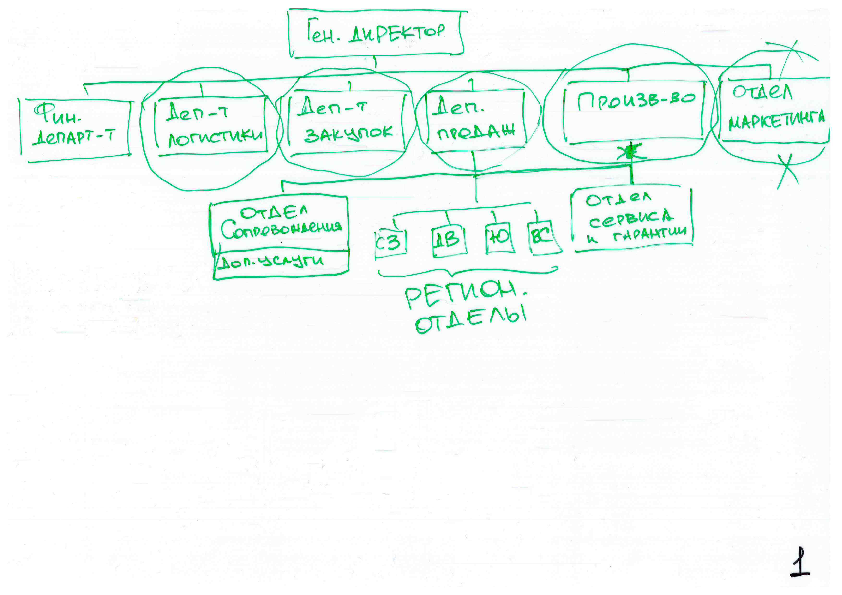 Ген. директор
Фин.
департ-т
Деп-т
логистики
Деп-т
закупок
Деп.
продаж
Произв-во
отдел
маркетинга
отдел
Сопровождения
Доп. услуги
СЗ
ДВ
Ю
ВС
отдел
сервиса
и гарантии
Регион.
отделы
1